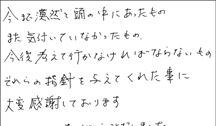 今まで漠然と頭の中にあったもの
また気付いていなかったもの、
今後考えて行かなければならないもの
それらの指針を与えてくれた事に
大変感謝しております